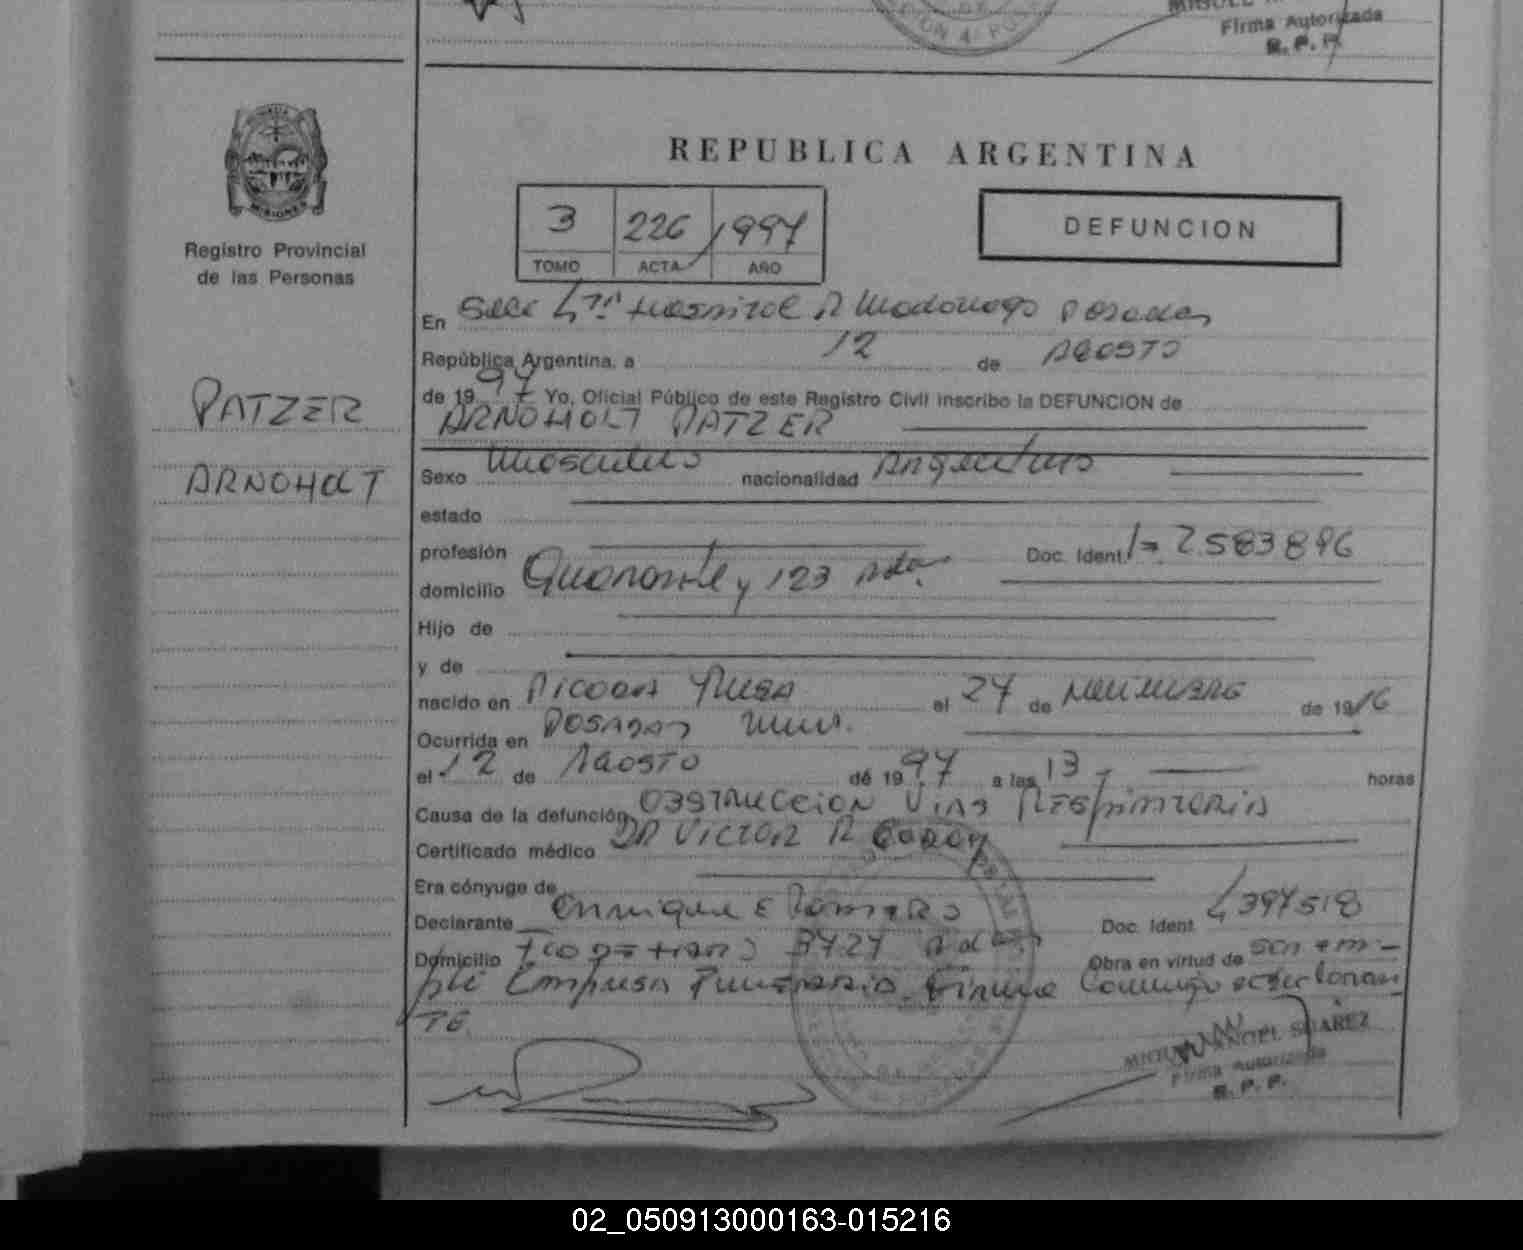 Firma Autorizada
R. P. P.
MISIONES
Registro Provincial
de las Personas
REPUBLICA ARGENTINA
3 226 1997
TOMO ACTA AÑO
DEFUNCION
En Secc 4ta Hospital R Madariaga Posadas
República Argentina, a 12 de AGOSTO
de 1997 Yo, Oficial Público de este Registro Civil inscribo la DEFUNCION de
ARNOHOLT PATZER
PATZER
ARNOHOLT
Sexo Masculino nacionalidad Argentino
estado
profesión Doc. Ident. 7.583.896
domicilio y 123 Pdas
Hijo de
y de
nacido en PICADA RUSA el 27 de NOVIEMBRE de 1916
Ocurrida en POSADAS Mnes.
el 12 de AGOSTO de 1997 a las 13 horas
Causa de la defunción OBSTRUCCION VIAS RESPIRATORIA
Certificado médico DR VICTOR R
Era cónyuge de
Declarante Enrique E ROMERO Doc. Ident 4397518
Domicilio 3727 Pdas Obra en virtud de ser em-
plé Empresa Funeraria. Firma Conmigo el declaran
TE.
MIGUEL ANGEL SUAREZ
Firma Autorizada
R. P. P.
02_050913000163-015216